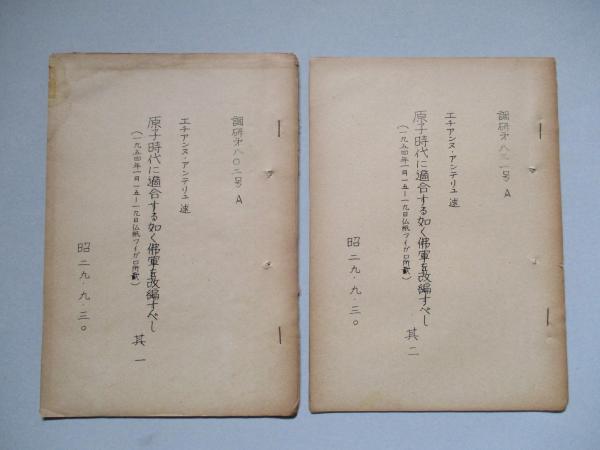 調研第八〇二号 A
エチアンヌ・アンテリュ 述
原子時代に適合する如く佛軍を改編すべし 其一
(一九五四年一月一五—一九日仏紙フイガロ所載)
昭二九.九.三〇
調研第八三一号 A
エチアンヌ・アンテリュ 述
原子時代に適合する如く佛軍を改編すべし 其二
(一九五四年一月一五—一九日仏紙フイガロ所載)
昭二九.九.三〇